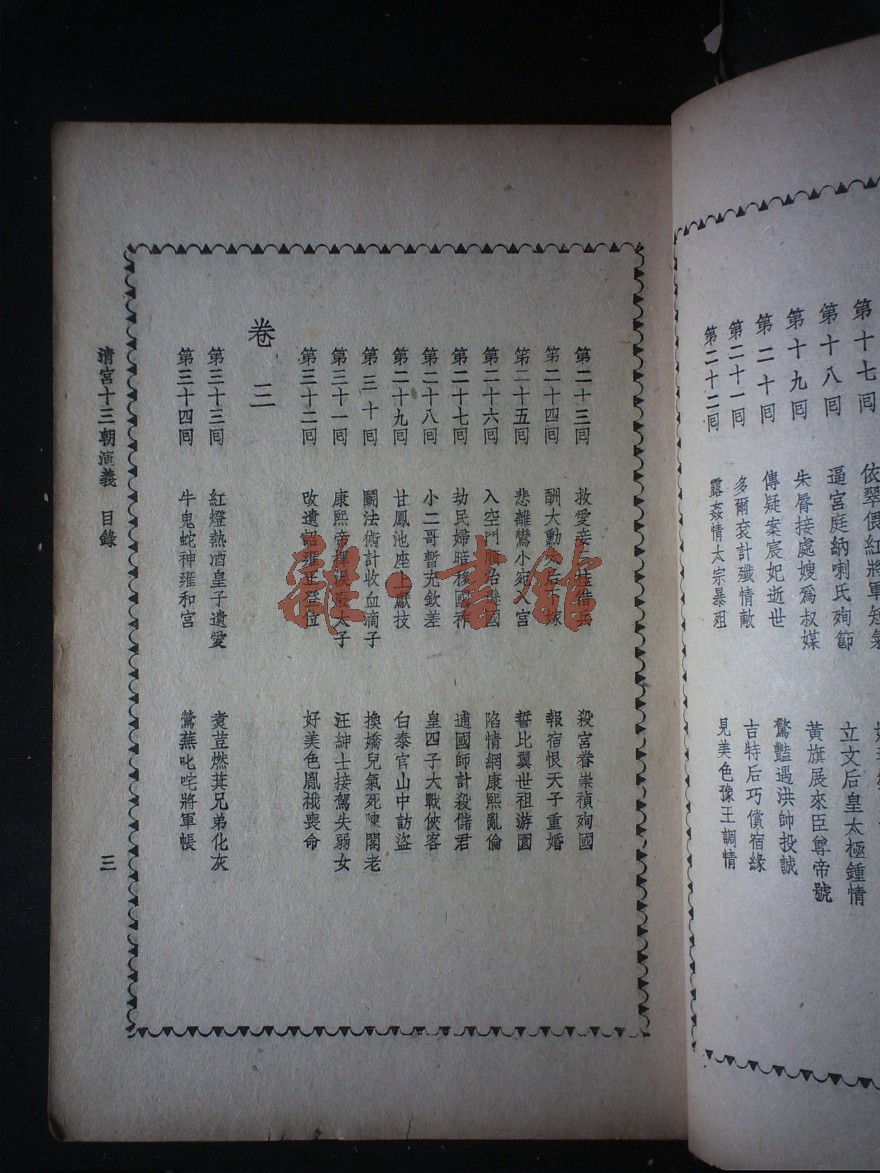 第十七回 依翠偎紅將軍短氣
第十八回 逼宮庭納喇氏殉節 立文后皇太極鍾情
第十九回 朱脣接處嫂為叔媒 黃旗展來臣尊帝號
第二十回 傳疑案宸妃逝世 驚豔遇洪帥投誠
第二十一回 多爾袞計殲情敵 吉特后巧償宿緣
第二十二回 露姦情太宗暴殂 見美色豫王調情
第二十三回 救愛妾 殺宮眷崇禎殉國
第二十四回 酬大勳 報宿恨天子重婚
第二十五回 悲離鸞小宛入宮 誓比翼世祖游園
第二十六回 入空門順治 國 陷情網康熙亂倫
第二十七回 劫民婦 國 逋國師計殺儲君
第二十八回 小二哥暫充欽差 皇四子大戰俠客
第二十九回 甘鳳池座上獻技 白泰官山中訪盜
第三十回 鬬法術計收血滴子 換嬌兒氣死陳閣老
第三十一回 康熙帝 太子 汪紳士接駕失弱女
第三十二回 改遺詔雍正登位 好美色胤禩喪命
卷三
第三十三回 紅燈熱酒皇子遺愛 煑荳燃萁兄弟化灰
第三十四回 牛鬼蛇神雍和宮 鶯燕叱咤將軍帳
清宮十三朝演義 目錄
三
雜·書館